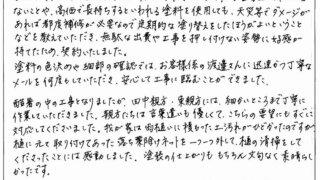 ないことや、高価で長持ちするといわれる塗料を使用しても、天災等でダメージが
あれば都度補修が必要なので定期的な塗り替えをしたほうがよいということ
などを教えていただき、無駄な出費や工事を押し付けない姿勢に好感が
持てたため、契約いたしました。
塗料の色決めや細部の確認では、お客様係の渡邉さんに迅速かつ丁寧な
メールを何度もしていただき、安心して工事に臨むことができました。
酷暑の中の工事となりましたが、田中親方・東親方には、細かいところまで丁寧に
作業していただきました。親方たちは言葉遣いも優しくて、こちらの要望にもすぐに
対応してくださいました。我が家は雨樋いに積もった土汚れがひどかったのですが、
樋に元々取り付けてあった落ち葉除けネットを一つ一つ外して、樋の清掃をして
くださったことには感動しました。塗装の仕上がりももちろん文句なく素晴らし
かったです。